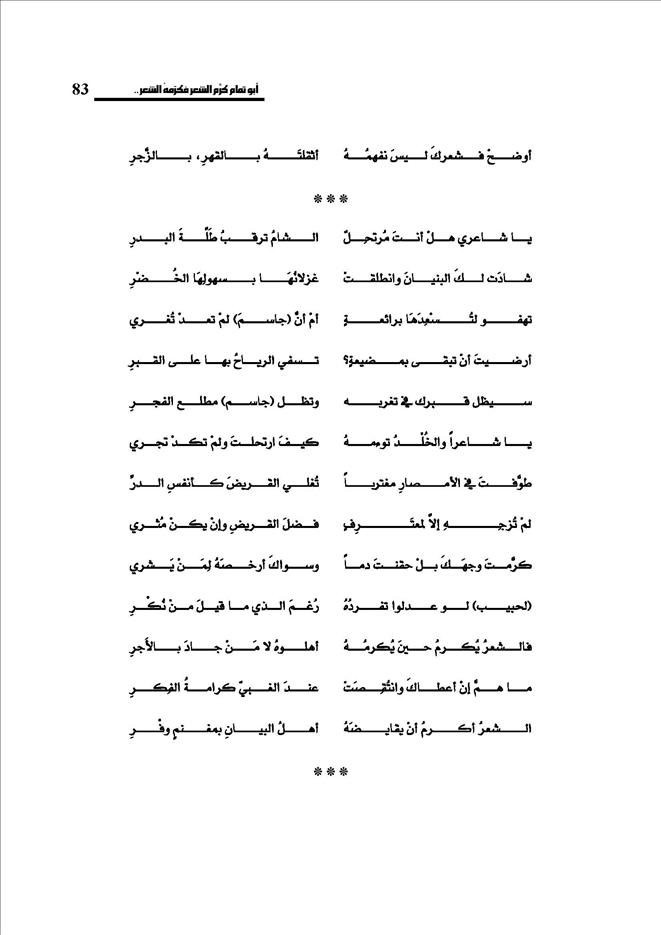 أبو تمام كرّم الشعر فكرّمهُ الشعر..
83
أوضحْ فشعركَ ليسَ نفهمُهُ أثقلتَهُ بالقهرِ، بالزَّجرِ
***
يا شاعري هلْ أنتَ مُرتحِلٌ الشامُ ترقبُ طَلَّةَ البدرِ
شادَت لكَ البنيانَ وانطلقتْ غزلانُهَا بسهولِهَا الخُضْرِ
تهفو لتُسْعِدَهَا برائعةٍ أمْ أنَّ (جاسمَ) لمْ تعدْ تُغري
أرضيتَ أنْ تبقى بمضيعةٍ؟ تسفي الرياحُ بها على القبرِ
سيظل قبرك في تغربه وتظل (جاسم) مطلع الفجرِ
يا شاعراً والخُلْدُ توءمهُ كيفَ ارتحلتَ ولمْ تكدْ تجري
طوَّفتَ في الأمصارِ مغترباً تُغلي القريضَ كأنفسِ الدرِّ
لمْ تُزجِهِ إلاَّ لمعتَرِفٍ فضلَ القريضِ وإنْ يكنْ مُثري
كرَّمتَ وجهَكَ بلْ حقنتَ دماً وسواكَ أرخصَهُ لِمَنْ يَشري
(لحبيبِ) لو عدلوا تفردُهُ رُغمَ الذي ما قيلَ منْ نُكْرِ
فالشعرُ يُكرمُ حينَ يُكرمُهُ أهلوهُ لا مَنْ جادَ بالأَجرِ
ما همَّ إنْ أعطاكَ وانتُقِصتْ عندَ الغبيِّ كرامةُ الفِكرِ
الشعرُ أكرمُ أنْ يقايضَهُ أهلُ البيانِ بمغنمٍ وفْرِ
***